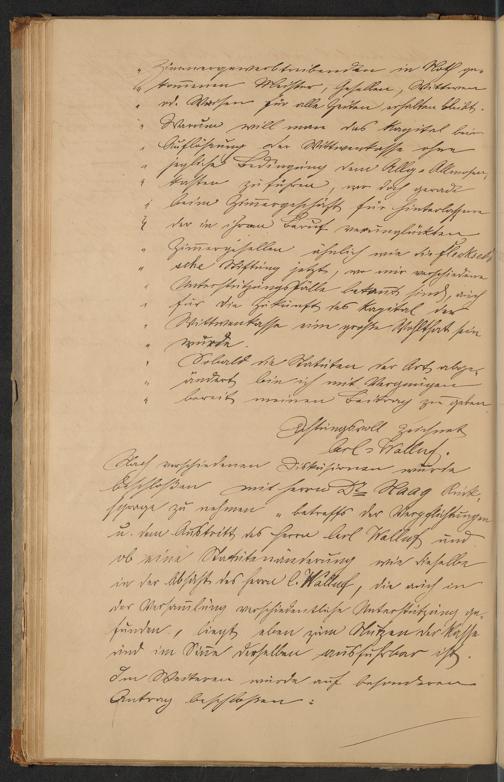 " Zimmergewerbtreibenden in Noth ge-
" kommenen Meister, Gesellen, Wittwen
" od. Waisen für alle Zeiten erhalten bleibt.
" Warum will man das Kapital bei
" Auflösung der Wittwenkasse ohne
" jegliche Bedingung dem Allg. Almosen-
" kasten zuführen, wo doch gerade
" beim Zimmergeschäft für Hinterlassene
" der in ihrem Beruf verunglückten
" Zimmergesellen ähnlich wie die
" sche Stiftung jetzt, wo mir verschiedene
" Unterstützungsfälle bekannt sind, auch
" für die Zukunft das Kapital der
" Wittwenkasse eine große Wohlthat sein
" würde.
" Sobald die Statuten der Art abge-
" ändert bin ich mit Vergnügen
" bereit meinen Beitrag zu geben
Achtungsvoll zeichnet
Carl Walluf.
Nach verschiedenen Diskusionen wurde
beschloßen mit Herrn Dr. Haag Rück-
sprache zu nehmen betreffs der Verpflichtungen
u. dem Austritt des Herrn Carl Walluf und
ob eine Statutenänderung wie dieselbe
in der Absicht des Herrn C. Walluf, die auch in
der Versamlung verschiedentliche Unterstützung ge-
funden, liegt eben zum Nutzen der Kasse
und im Sinne derselben ausführbar ist.
Im Weiteren wurde auf besonderen
Antrag beschloßen: